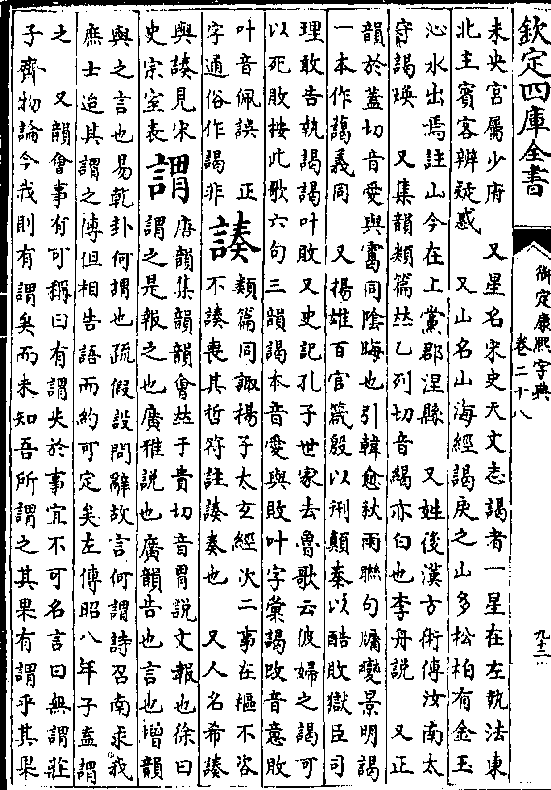 欽定四庫全書
御定康熙字典
卷二十八
九十二
未央宫屬少府 又星名宋史天文志謁者一星在左執法東
北主賓客辨疑惑 又山名山海經謁戾之山多松柏有金玉
沁水出焉註山今在上黨郡涅縣 又姓後漢方術傳汝南太
守謁煥 又集韻類篇𠀤乙列切音緆亦白也李舟說 又正
韻於蓋切音愛與藹同陰晦也引韓愈秋雨聯句牖變景明謁
一本作藹義同 又揚雄百官箴殷以刑顛秦以酷敗獄臣司
理敢告執謁謁叶敗 又史記孔子世家去魯歌云彼婦之謁可
以死敗按此歌六句三韻謁本音愛與敗叶字彙謁改音意敗
叶音佩誤 正
字通俗作謁非
諉 類篇同諏揚子太玄經次二事在樞不咨
不諉喪其哲符註諉奏也 又人名希諉
與諉見宋
史宗室表
謂 唐韻集韻韻會𠀤于貴切音胃說文報也徐曰
謂之是報之也廣雅說也廣韻告也言也增韻
與之言也易乾卦何謂也疏假設問辭故言何謂詩召南求我
庶士迨其謂之傳但相告語而約可定矣左傳昭八年子盍謂
之 又韻會事有可稱曰有謂失於事宜不可名言曰無謂莊
子齊物論今我則有謂矣而未知吾所謂之其果有謂乎其果